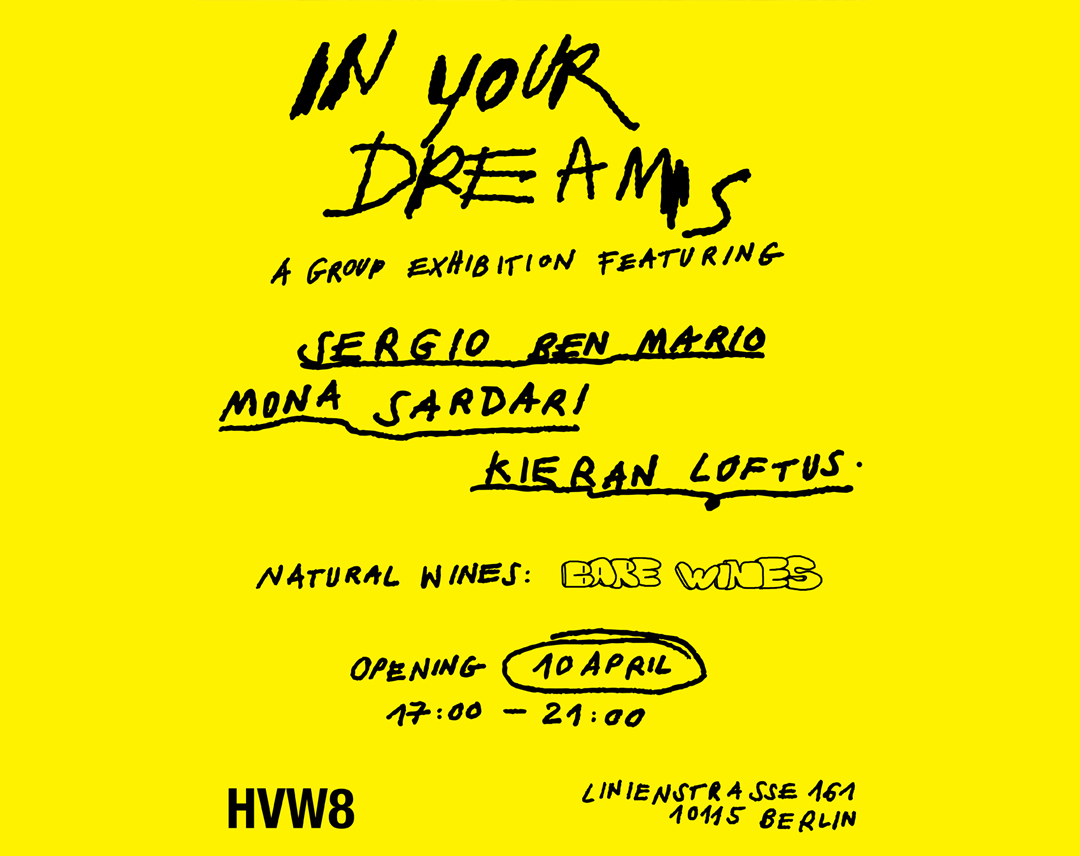 IN YOUR
DREAMS
A GROUP EXHIBITION FEATURING
SERGIO BEN MARIO
MONA SARDARI
KIERAN LOFTUS.
NATURAL WINES: BARE WINES
OPENING 10 APRIL
17:00 – 21:00
HVW8
LINIENSTRASSE 161
10115 BERLIN